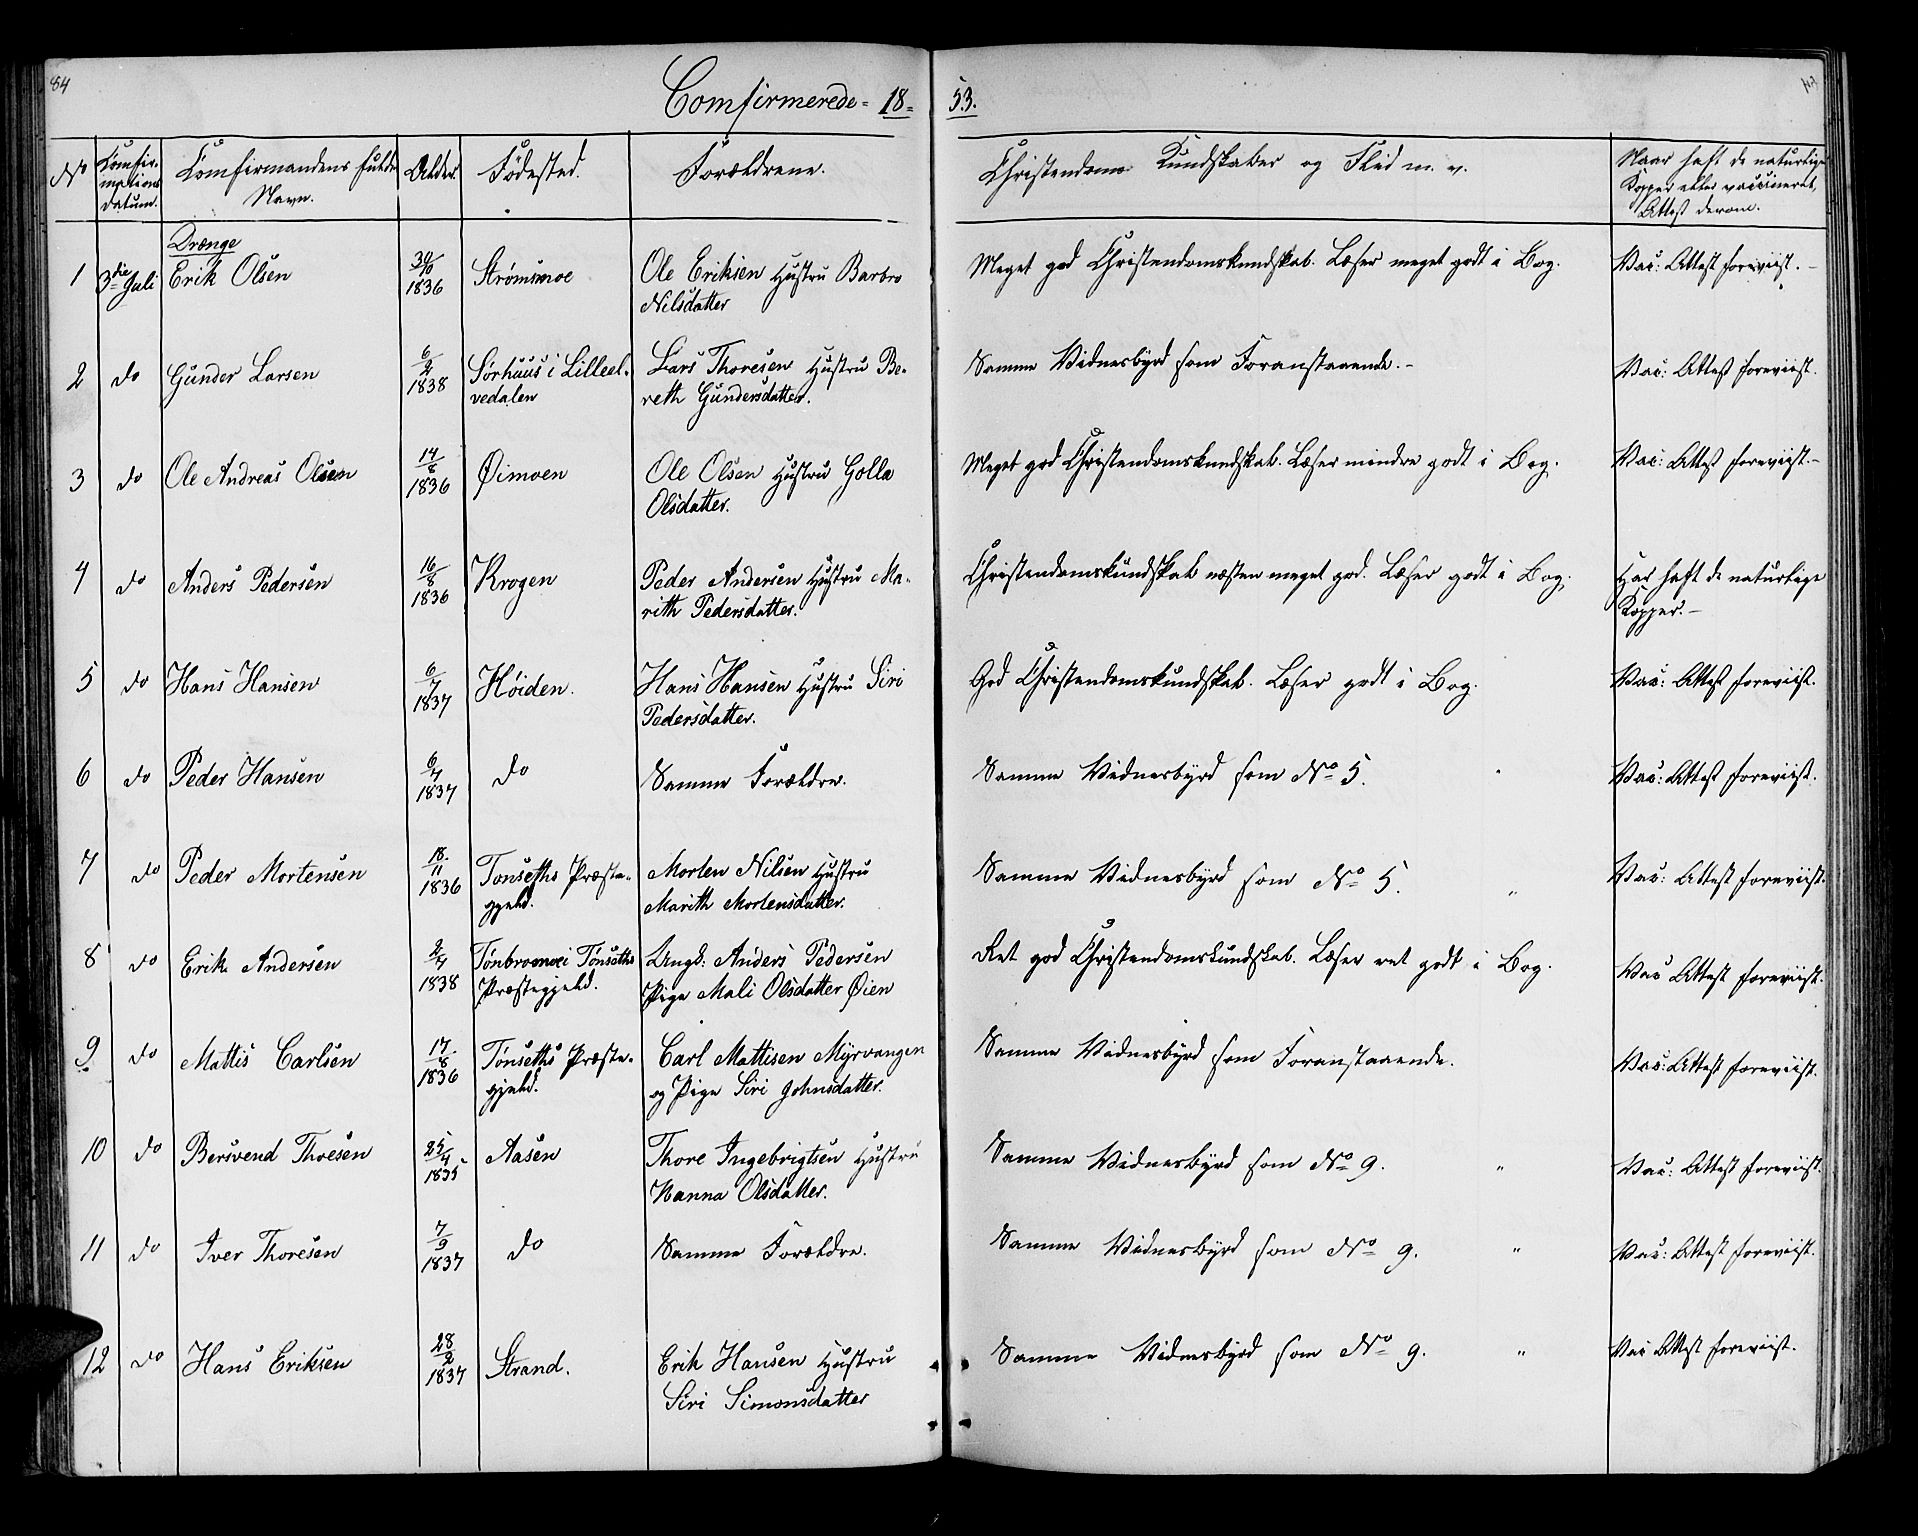 84
Comfirmerede = 18 = 53.
No
Comfir-
mations
datum.
Comfirmandens fulde
Navn.
Alder.
Fødested.
Forældrene.
Christendoms Kundskaber og Flid m. v.
Naar haft de naturlige
Kopper eller vaccineret,
Attest derom.
Drænge
1 3die Juli Erik Olsen 1836 Strømsmoe Ole Eriksen Hustru Barbro
Nilsdatter
Meget god Christendomskundskab. Læser meget godt i Bog. Vac: Attest foreviist. -
2 do Gunder Larsen 6/2 1838 Sørhuus i Lilleel-
vedalen
Lars Thoresen Hustru Be-
reth Gundersdatter.
Samme Vidnesbyrd som Foranstaaende. - Vac: Attest foreviist.
3 do Ole Andreas Olsen 14/8 1836 Øimoen Ole Olsen Hustru Golla
Olsdatter.
Meget god Christendomskundskab. Læser mindre godt i Bog. Vac: Attest foreviist. -
4 do Anders Pedersen 16/8 1836 Krogen Peder Andersen Hustru Ma-
rith Pedersdatter.
Christendomskundskab næsten meget god. Læser godt i Bog. Har haft de naturlige
Kopper. -
5 do Hans Hansen 6/7 1837 Høiden. Hans Hansen Hustru Siri
Pedersdatter.
God Christendomskundskab. Læser godt i Bog. Vac: Attest foreviist.
6 do Peder Hansen 6/7 1837 do Samme Forældre.
Samme Vidnesbyrd som No 5. Vac: Attest foreviist.
7 do Peder Mortensen 18/11 1836 Tonseths Præste-
gjeld.
Morten Nilsen Hustru
Marith Mortensdatter.
Samme Vidnesbyrd som No 5. " Vac: Attest foreviist.
8 do Erik Andersen 2/7 1838 Tønbromoe i Tønseths
Præstegjeld.
Ungk: Anders Pedersen
Pige Mali Olsdatter Øien
Ret god Christendomskundskab. Læser ret godt i Bog. Vac Attest foreviist.
9 do Mattis Carlsen 17/8 1836 Tønseths Præste-
gjeld.
Carl Mattisen Myrvangen
og Pige Siri Johnsdatter.
Samme Vidnesbyrd som Foranstaaende. Vac: Attest foreviist.
10 do Bersvend Thoesen 25/4 1835 Aasen Thore Ingebrigtsen Hustru
Hanna Olsdatter.
Samme Vidnesbyrd som No 9. " Vac: Attest foreviist.
11 do Iver Thoresen 7/9 1837 do Samme Forældre.
Samme Vidnesbyrd som No 9. " Vac: Attest foreviist.
12 do Hans Eriksen 28/2 1837 Strand. Erik Hansen Hustru
Siri Simonsdatter
Samme Vidnesbyrd som No 9. " Vac Attest foreviist.